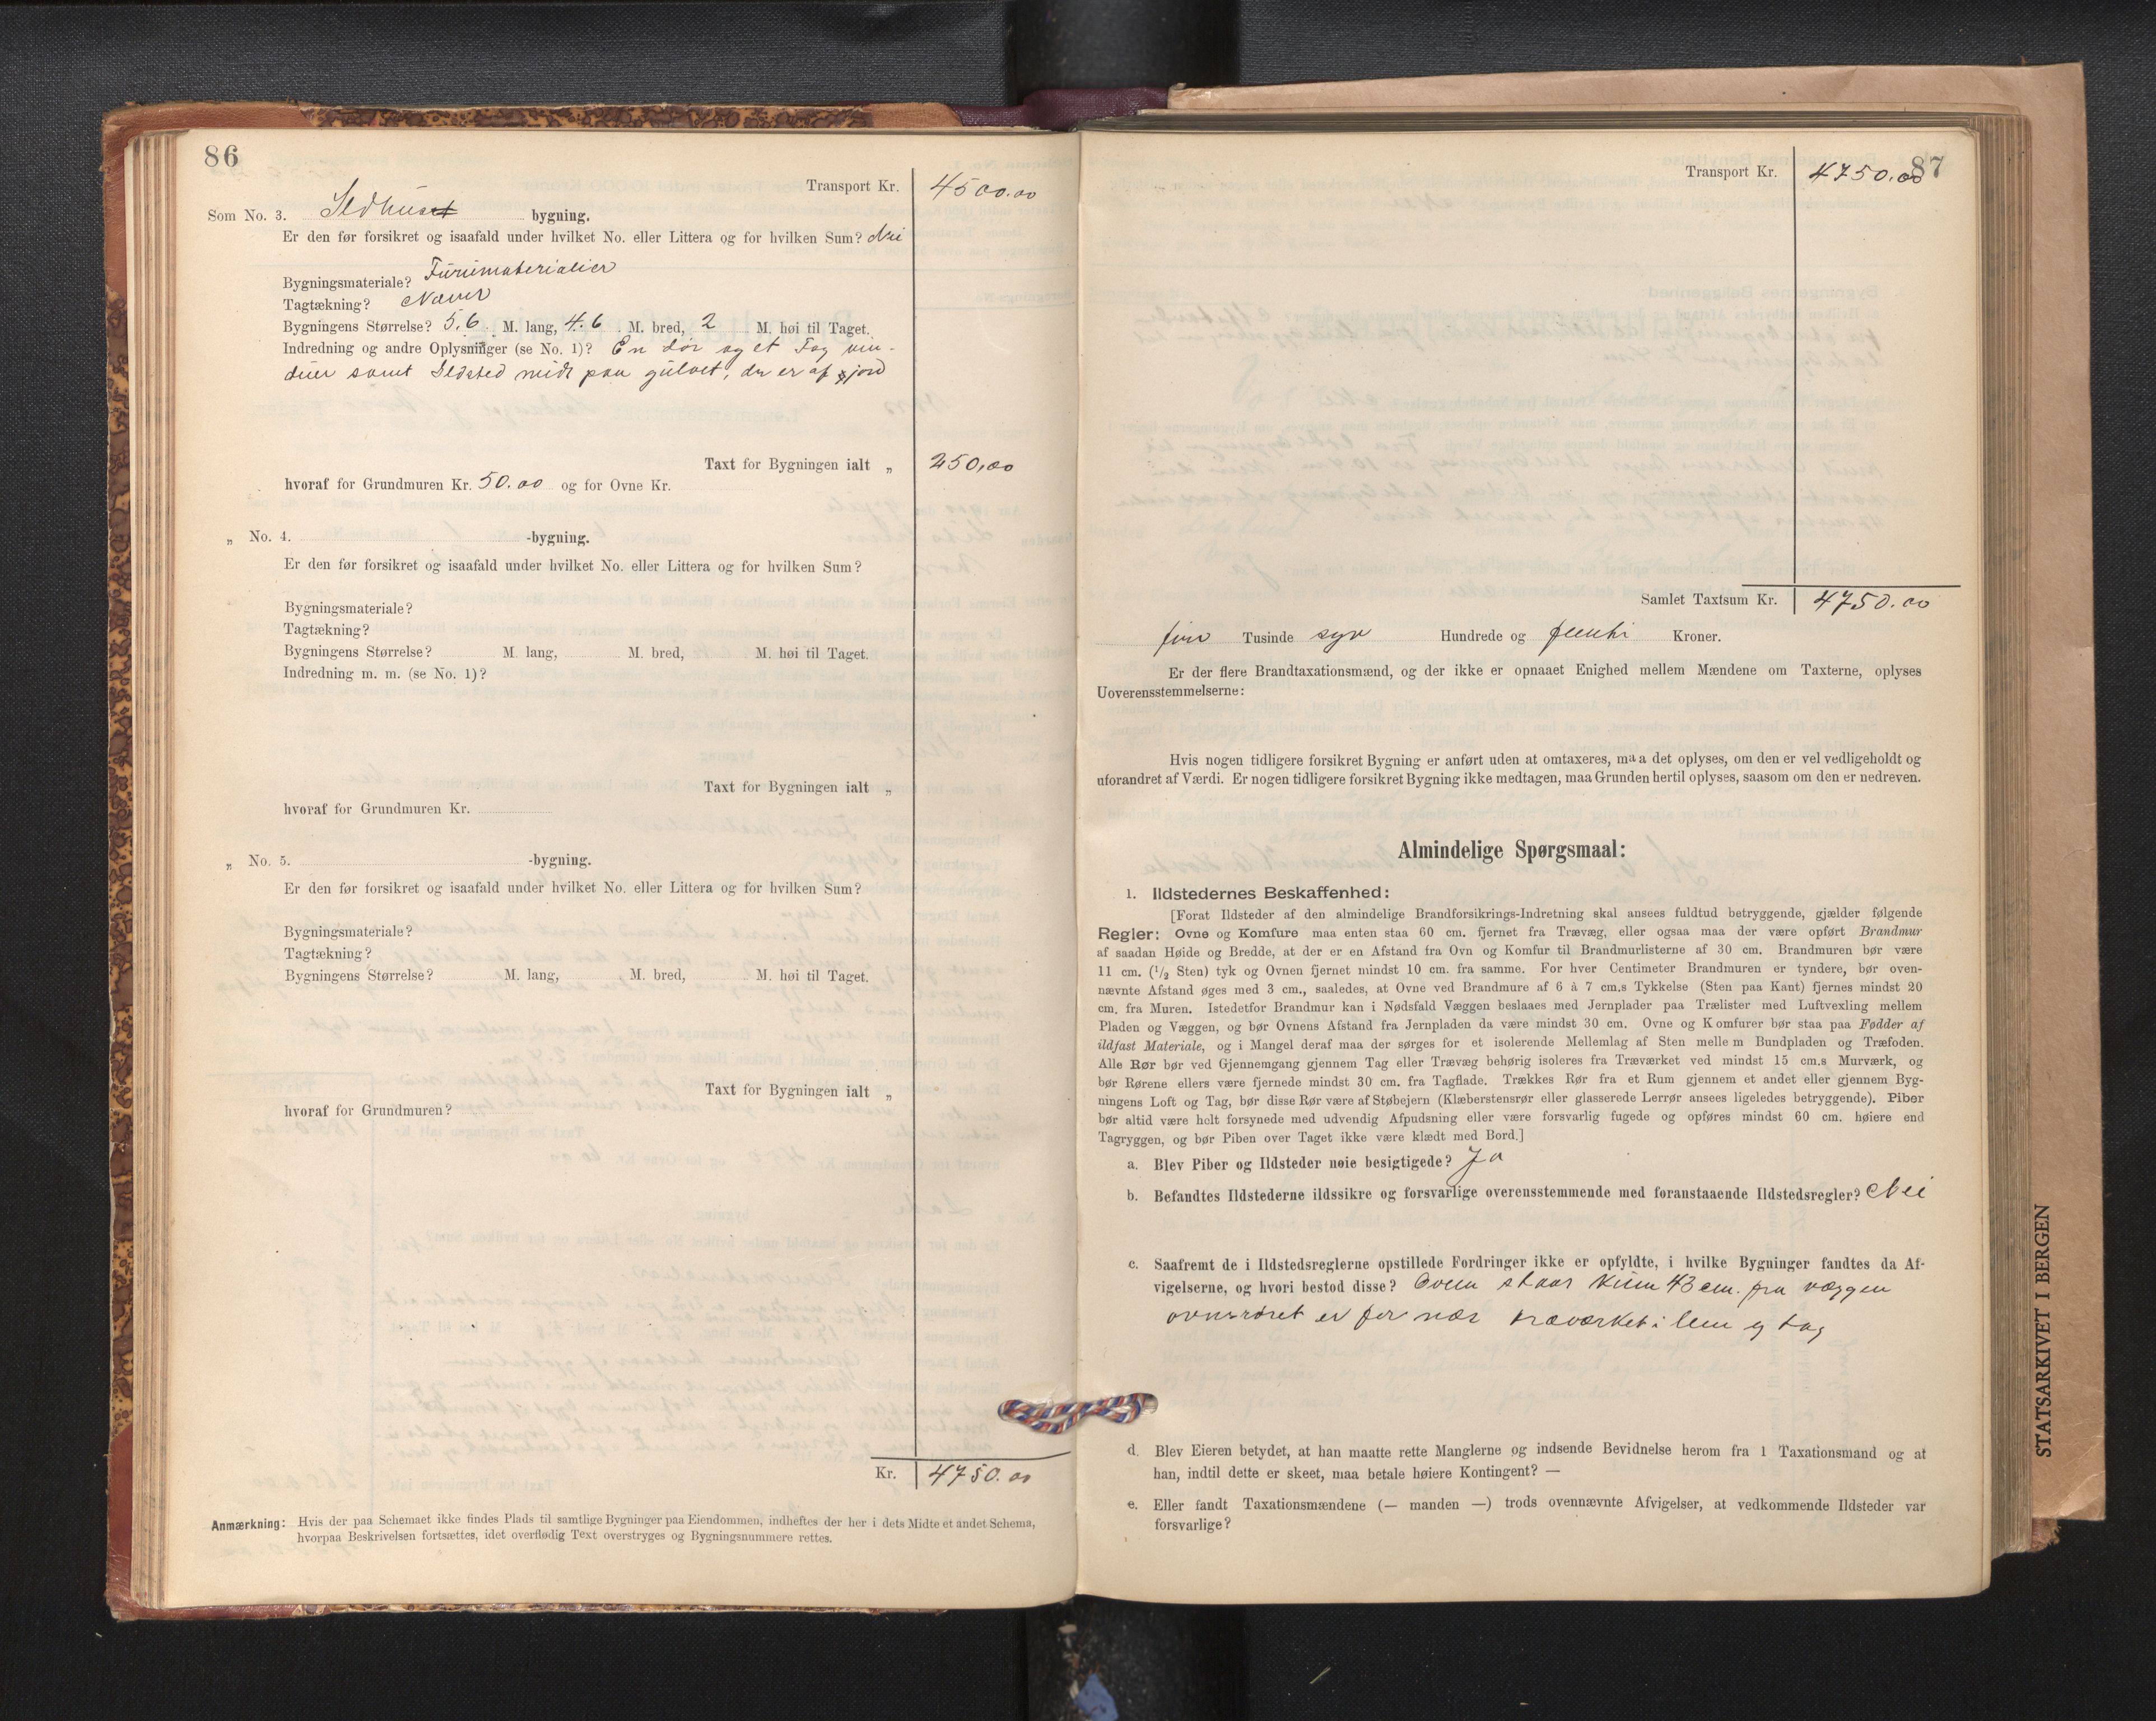 86
Transport Kr. 4500.00
Som No. 3. Ildhus bygning.
Er den før forsikret og isaafald under hvilket No. eller Littera og for hvilken Sum? Nei
Bygningsmateriale? Furumaterialier
Tagtækning? Næver
Bygningens Størrelse? 5.6 M. lang, 4.6 M. bred, 2 M. høi til Taget.
Indredning og andre Oplysninger (se No. 1)? En dør og et Fag vin-
duer samt Ildsted midt paa gulvet, der er af jord
Taxt for Bygningen ialt „ 250,00
hvoraf for Grundmuren Kr. 50.00 og for Ovne Kr.
„ No. 4. -bygning.
Er den før forsikret og isaafald under hvilket No. eller Littera og for hvilken Sum?
Bygningsmateriale?
Tagtækning?
Bygningens Størrelse? M. lang, M. bred, M. høi til Taget.
Indredning m. m. (se No. 1)?
Taxt for Bygningen ialt „
hvoraf for Grundmuren Kr.
„ No. 5. -bygning.
Er den før forsikret og isaafald under hvilket No. eller Littera og for hvilken Sum?
Bygningsmateriale?
Tagtækning?
Bygningens Størrelse? M. lang, M. bred, M. høi til Taget.
Taxt for Bygningen ialt „
hvoraf for Grundmuren?
Kr. 4750.00
Anmærkning: Hvis der paa Schemaet ikke findes Plads til samtlige Bygninger paa Eiendommen, indheftes der her i dets Midte et andet Schema,
hvorpaa Beskrivelsen fortsættes, idet overflødig Text overstryges og Bygningsnummere rettes.
87
Transport Kr. 4750.00
Samlet Taxtsum Kr. 4750.00
fire Tusinde syv Hundrede og femti Kroner.
Er der flere Brandtaxationsmænd, og der ikke er opnaaet Enighed mellem Mændene om Taxterne, oplyses
Uoverensstemmelserne:
Hvis nogen tidligere forsikret Bygning er anført uden at omtaxeres, maa det oplyses, om den er vel vedligeholdt og
uforandret af Værdi. Er nogen tidligere forsikret Bygning ikke medtagen, maa Grunden hertil oplyses, saasom om den er nedreven.
Almindelige Spørgsmaal:
1. Ildstedernes Beskaffenhed:
[Forat Ildsteder af den almindelige Brandforsikrings-Indretning skal ansees fuldtud betryggende, gjælder følgende
Regler: Ovne og Komfure maa enten staa 60 cm. fjernet fra Trævæg, eller ogsaa maa der være opført Brandmur
af saadan Høide og Bredde, at der er en Afstand fra Ovn og Komfur til Brandmurlisterne af 30 cm. Brandmuren bør være
11 cm. (1/2 Sten) tyk og Ovnen fjernet mindst 10 cm. fra samme. For hver Centimeter Brandmuren er tyndere, bør oven-
nævnte Afstand øges med 3 cm., saaledes, at Ovne ved Brandmure af 6 à 7 cm.s Tykkelse (Sten paa Kant) fjernes mindst 20
cm. fra Muren. Istedetfor Brandmur kan i Nødsfald Væggen beslaaes med Jernplader paa Trælister med Luftvexling mellem
Pladen og Væggen, og bør Ovnens Afstand fra Jernpladen da være mindst 30 cm. Ovne og Komfurer bør staa paa Fødder af
ildfast Materiale, og i Mangel deraf maa der sørges for et isolerende Mellemlag af Sten mellem Bundpladen og Træfoden.
Alle Rør bør ved Gjennemgang gjennem Tag eller Trævæg behørig isoleres fra Træværket ved mindst 15 cm.s Murværk, og
bør Rørene ellers være fjernede mindst 30 cm. fra Tagflade. Trækkes Rør fra et Rum gjennem et andet eller gjennem Byg-
ningens Loft og Tag, bør disse Rør være af Støbejern (Klæberstensrør eller glasserede Lerrør ansees ligeledes betryggende). Piber
bør altid være helt forsynede med udvendig Afpudsning eller være forsvarlig fugede og opføres mindst 60 cm. høiere end
Tagryggen, og bør Piben over Taget ikke være klædt med Bord.]
a. Blev Piber og Ildsteder nøie besigtigede? Ja
b. Befandtes Ildstederne ildssikre og forsvarlige overensstemmende med foranstaaende Ildstedsregler? Nei
c. Saafremt de i Ildstedsreglerne opstillede Fordringer ikke er opfyldte, i hvilke Bygninger fandtes da Af-
vigelserne, og hvori bestod disse? Ovnen staar kun 43 cm. fra væggen
ovnsrøret er for nær træværket i lem og tag
d. Blev Eieren betydet, at han maatte rette Manglerne og indsende Bevidnelse herom fra 1 Taxationsmand og at
han, indtil dette er skeet, maa betale høiere Kontingent? —
e. Eller fandt Taxationsmændene (— manden —) trods ovennævnte Afvigelser, at vedkommende Ildsteder var
forsvarlige?
STATSARKIVET I BERGEN